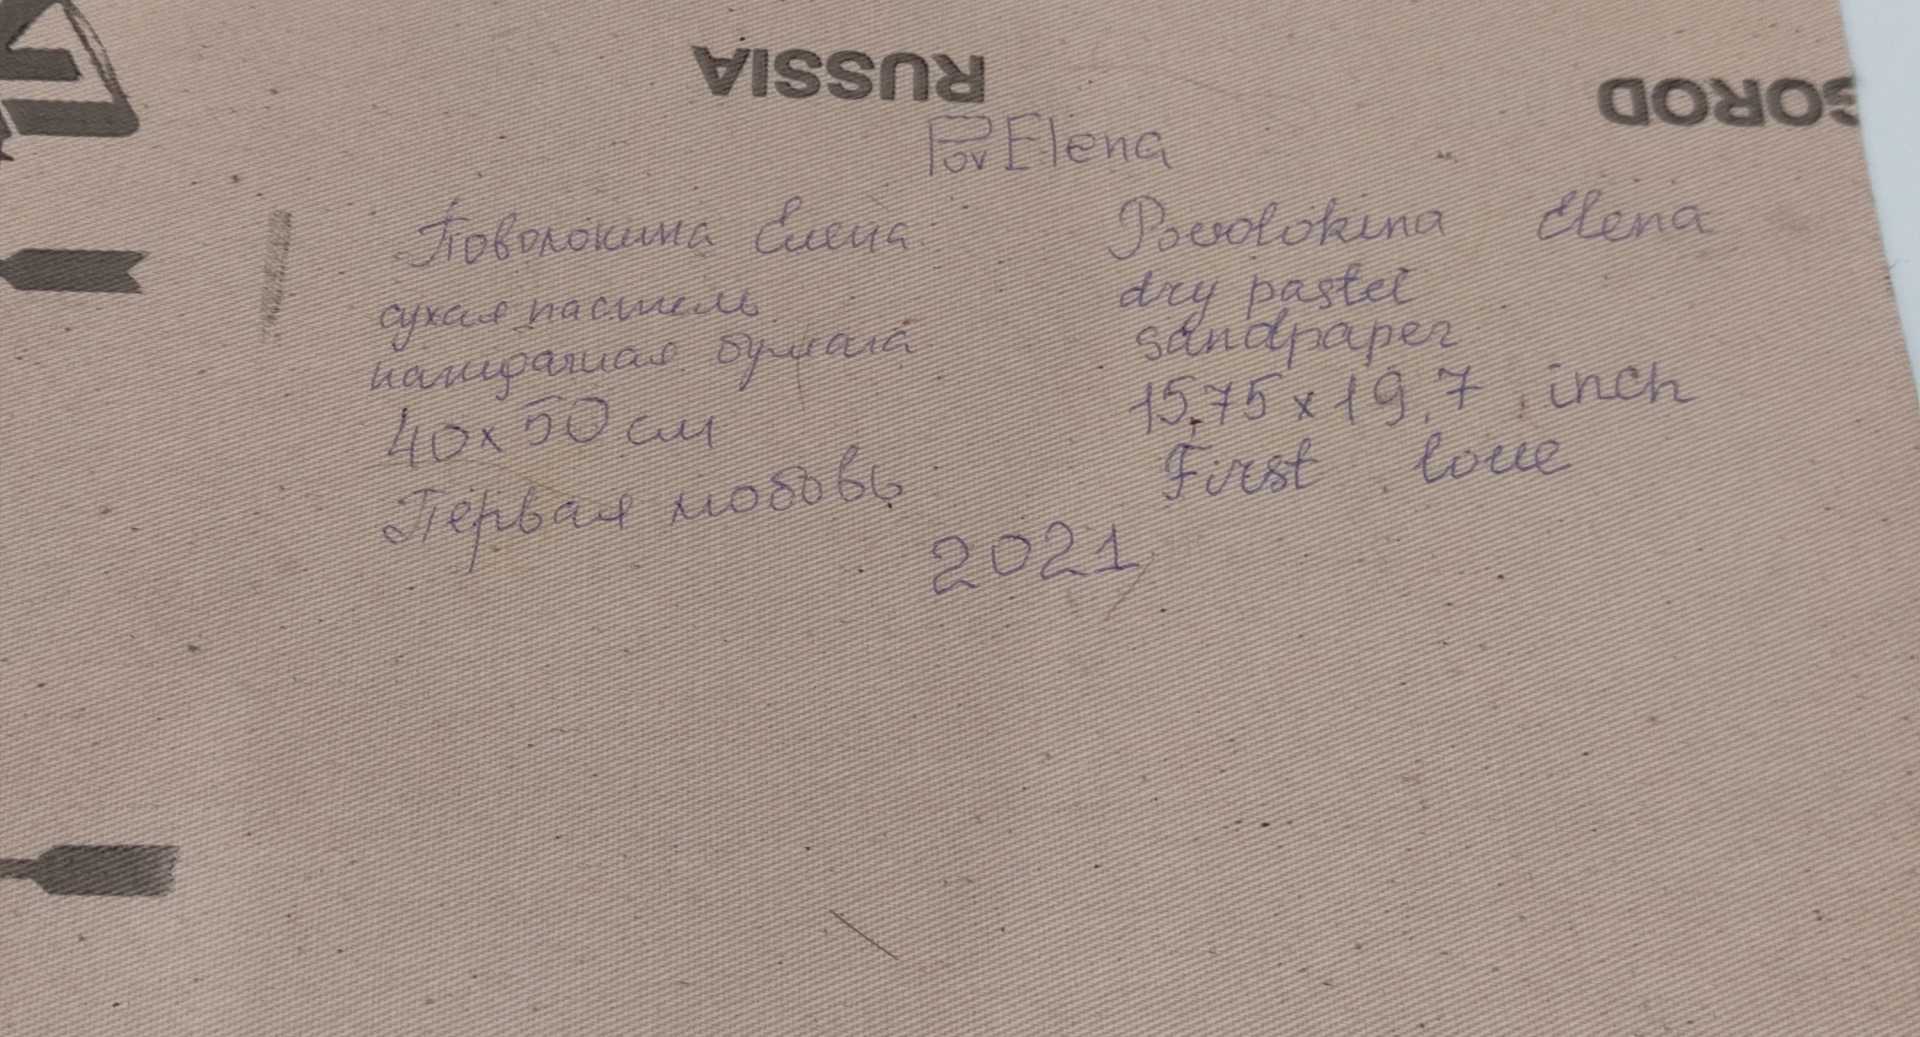 RUSSIA
GOROD
Pov Elena
Поволокина Елена
сухая пастель
наждачная бумага
40x50 см
Первая любовь
Povolokina Elena
dry pastel
sandpaper
15,75 x 19,7 inch
First love
2021